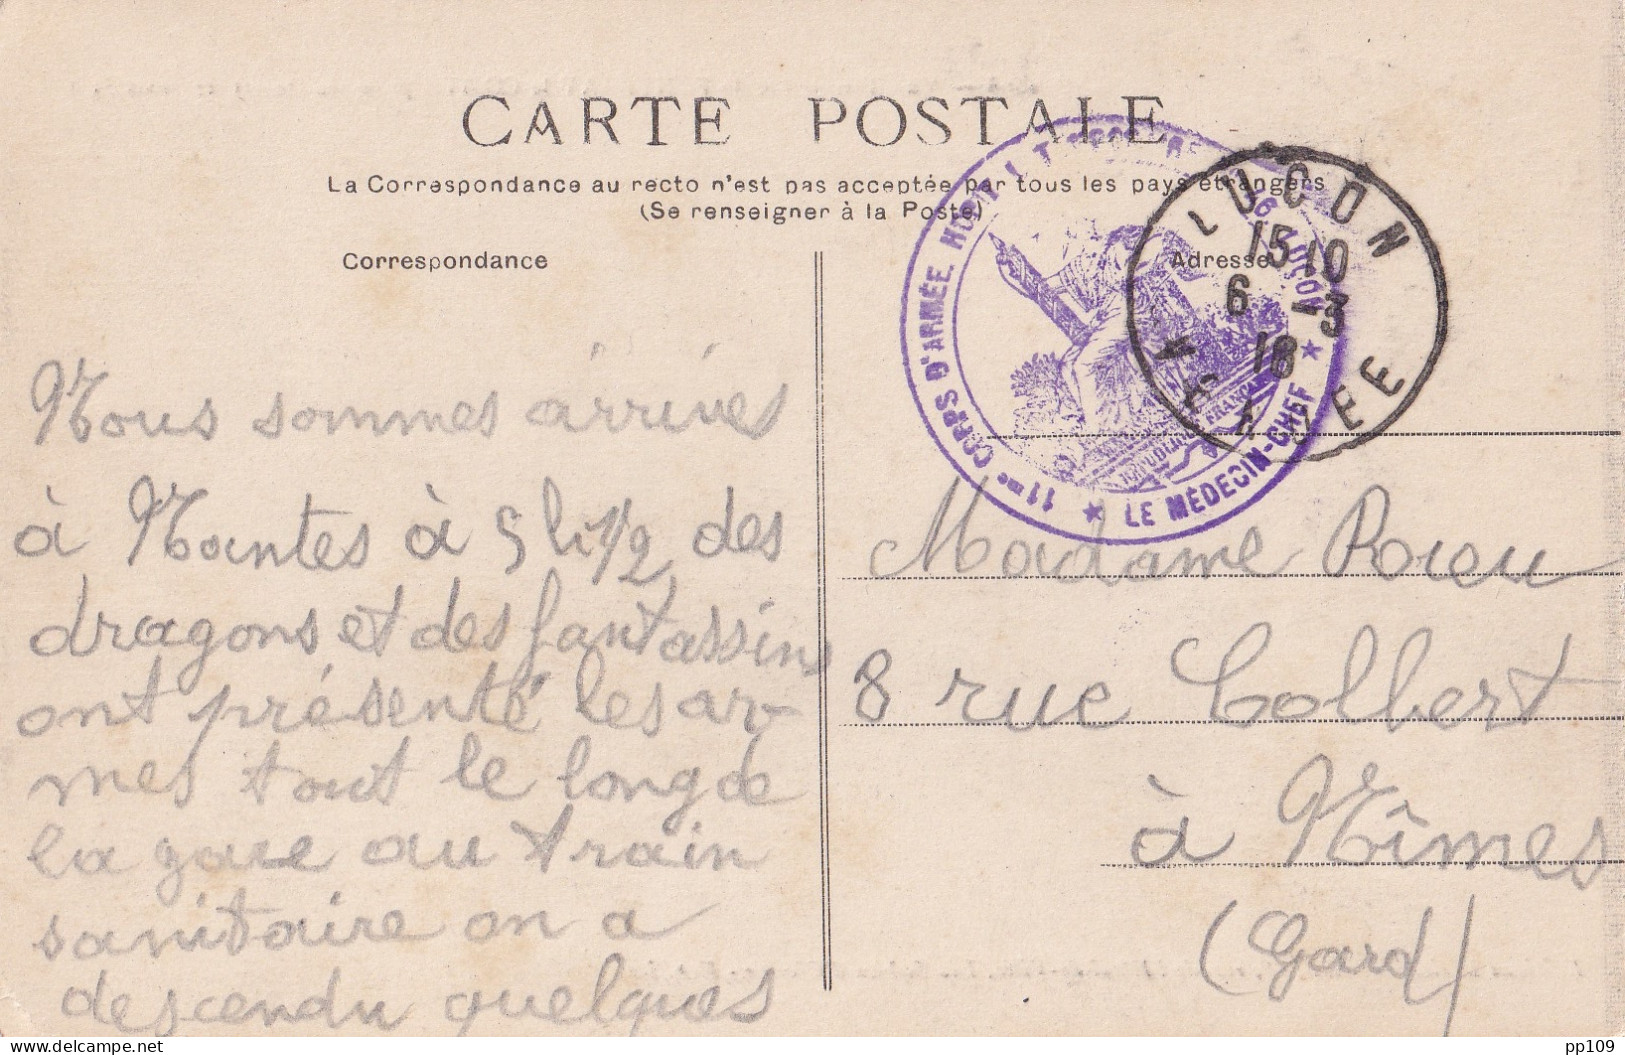 CARTE POSTALE
La Correspondance au recto n'est pas acceptée par tous les pays étrangers
(Se renseigner à la Poste)
Correspondance
Adresse
11me CORPS D'ARMÉE
LUÇON
★ LE MÉDECIN-CHEF ★
LUCON
15 10
6 -3
18
VENDEE
Nous sommes arrives
à Nantes à 5 h 1/2 des
dragons et des fantassins
ont présenté les ar-
mes tout le long de
la gare au train
sanitaire on a
descendu quelques
Madame Rieu
8 rue Colbert
à Nîmes
(Gard)
pp109
delcampe.net